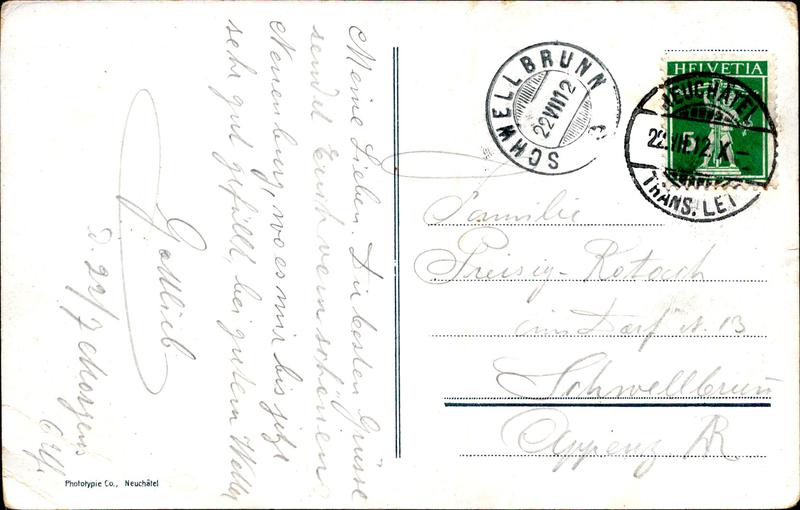 Meine Lieben. Die besten Grüsse
sendet Euch vom schönen
Neuenburg, wo es mir bis jetzt
sehr gut gefällt, bei gutem Wetter
Gottlieb
D. 22/7 Morgens
6 Uhr
Phototypie Co., Neuchâtel
SCHWELLBRUNN
22 VII 12
HELVETIA
5
NEUCHÂTEL
22. VII. 12. X
TRANS. LET
Familie
Preisig-Rotach
im Dorf N. 13
Schwellbrunn
Appenz AR